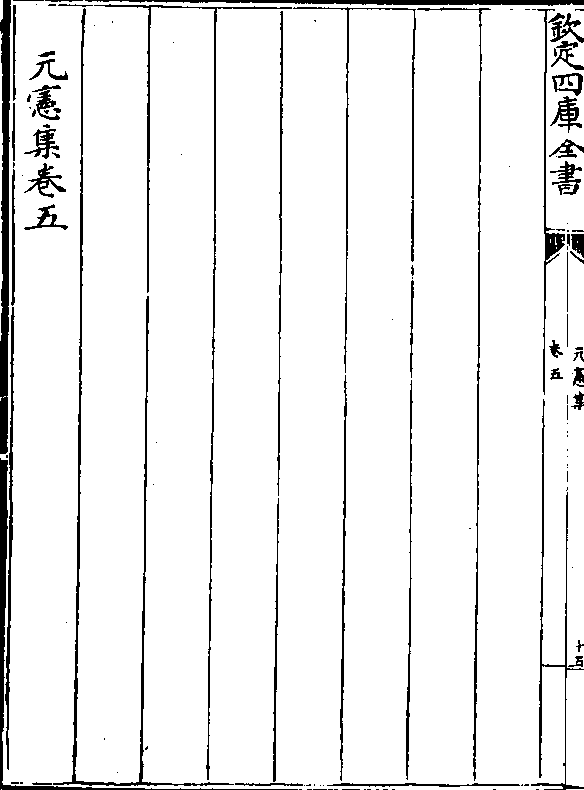 欽定四庫全書
元憲集
卷五
十五
元憲集卷五